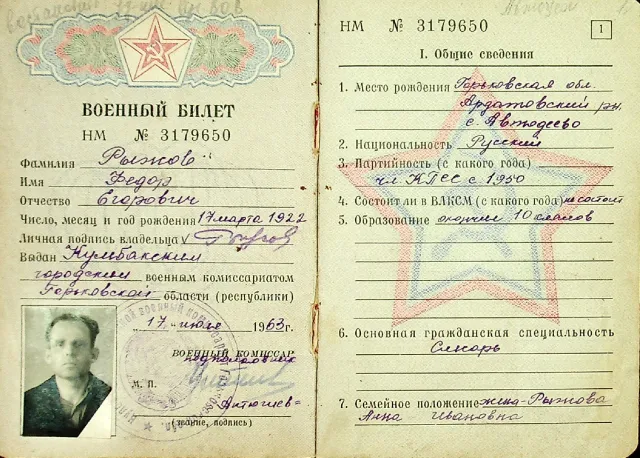 ВОЕННЫЙ БИЛЕТ
НМ № 3179650
Фамилия Рыжов
Имя Федор
Отчество Егорович
Число, месяц и год рождения 17 марта 1922
Личная подпись владельца
Выдан Кулебакским
городским военным комиссариатом
Горьковской области (республики)
17 июля 1963 г.
ВОЕННЫЙ КОМИССАР
подполковник
М. П.
(звание, подпись)
НМ № 3179650
1
I. Общие сведения
1. Место рождения Горьковская обл.
Ардатовский рн.
с. Автодеево
2. Национальность Русский
3. Партийность (с какого года)
чл. КПСС с 1950
4. Состоит ли в ВЛКСМ (с какого года) не состоит
5. Образование окончил 10 классов
6. Основная гражданская специальность
Слесарь
7. Семейное положение жена - Рыжова
Анна Ивановна